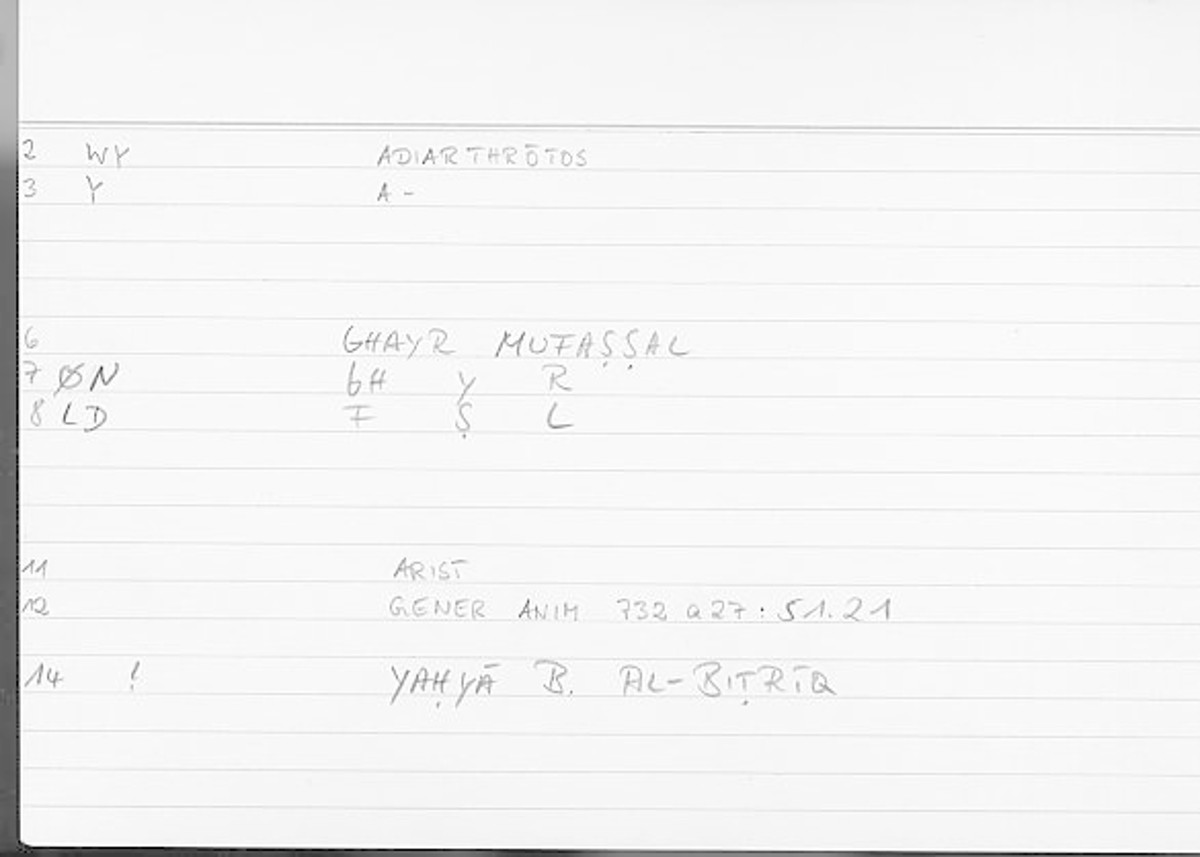 2 WY ADIARTHRŌTOS
3 Y A-
6 GHAYR MUFAṢṢAL
7 ØN GH Y R
8 LD F Ṣ L
11 ARIST
12 GENER ANIM 732 a 27 : 51.21
14 ! YAḤYĀ B. AL-BIṬRĪQ